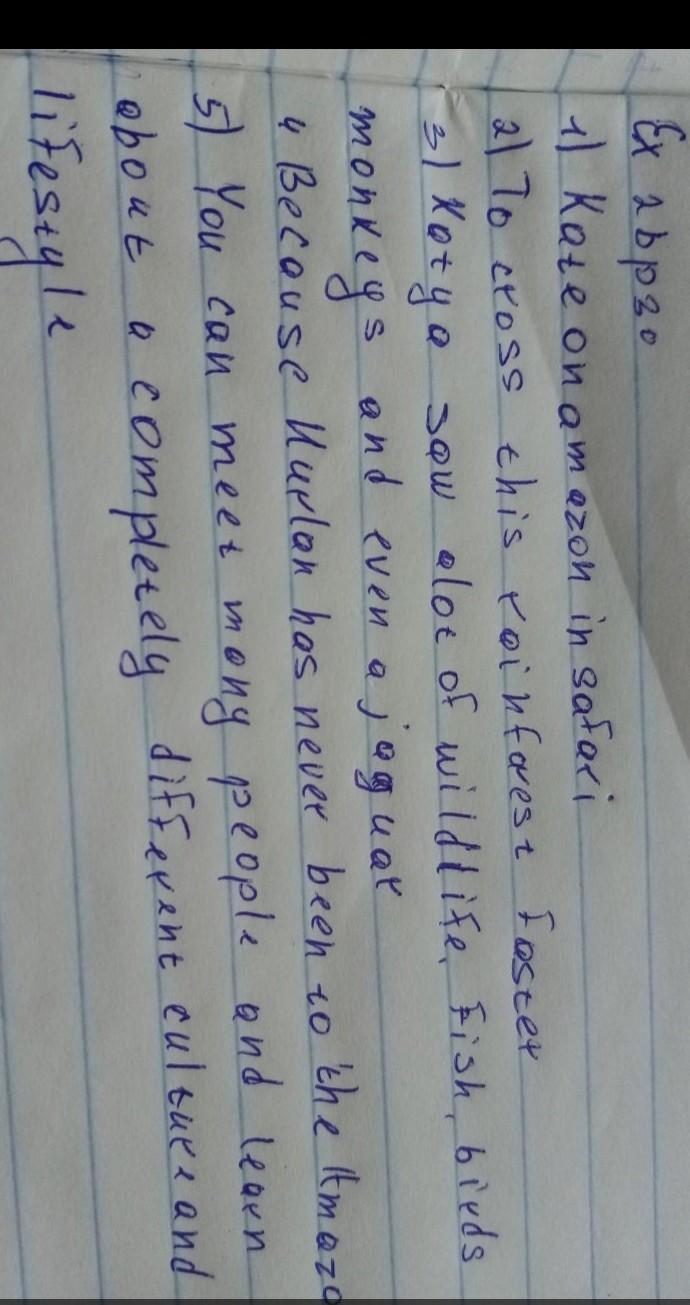 Ex 2b p30
1) Kate on amazon in safari
2) To cross this rainforest faster
3) Katya saw alot of wildlife, fish, birds
monkeys and even a jaguar
4 Because Nurlan has never been to the Amazo
5) You can meet many people and learn
about a completely different culture and
lifestyle